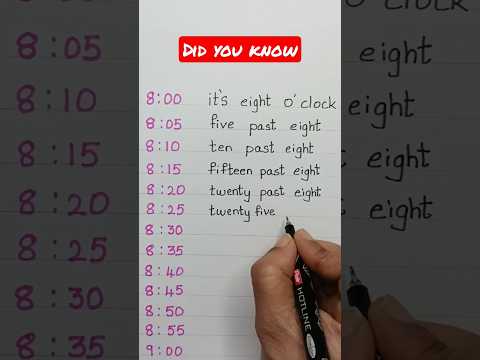 Did you know
8:00 it's eight o'clock
8:05 five past eight
8:10 ten past eight
8:15 fifteen past eight
8:20 twenty past eight
8:25 twenty five
8:30
8:35
8:40
8:45
8:50
8:55
9:00
8:05
8:10
8:15
8:20
8:25
8:30
8:35
o'clock
eight
eight
eight
HOTLINE